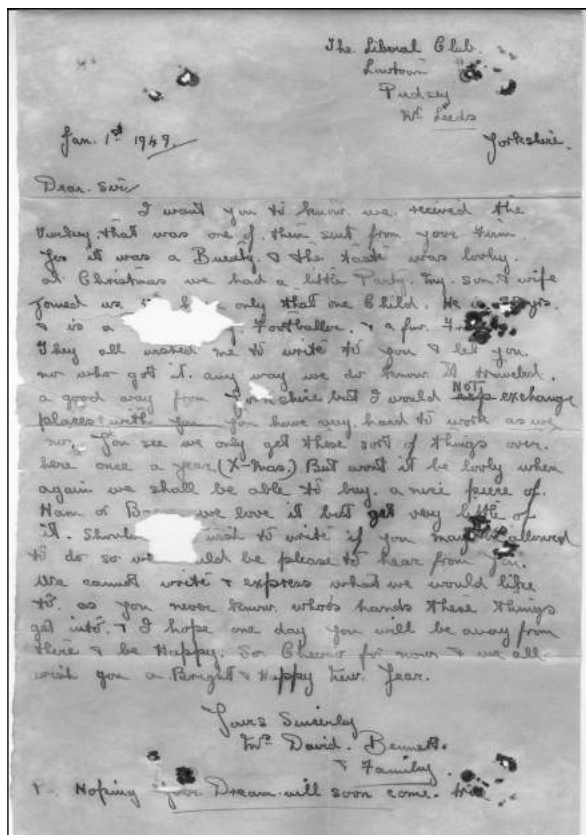 The Liberal Club.
Lowtown
Pudsey
Nr Leeds
Yorkshire.
Jan. 1st 1949.
Dear. Sir/
I want you to know we. recived the
Turkey that was one of them sent from your Farm
Yes it was a Beauty. & the taste was lovly.
at Christmas we had a little Party. my. son & wife
joined us only that one Child. He is
& is a Footballer. & a few.
They all wished me to write to you & let you.
no who got it. any way we do know it traveled.
a good way from but I would NOT exchange
places with you you have very hard to work as we
no. You see we only get these sort of things over.
here once a year. (X-mas.) But wont it be lovly when
again we shall be able to buy. a nice piece of.
Ham or we love it but get very little of
it. wish to write if you may allowed
to do so be please to hear from you.
We cannot write & express what we would like
to. as you never know. who's hands these things
get into. & I hope one day you will be away from
there & be Happy. So Cheerio for now & we all.
wish you a Bright & Happy New. Year.
Yours Sincerly
David. Bennett.
& Family.
Hoping your Dream will soon come.